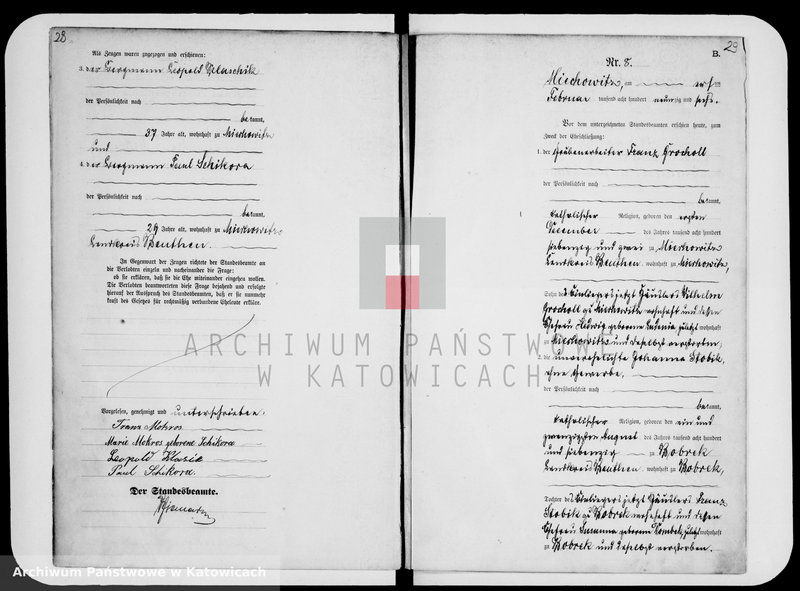 28
Als Zeugen waren zugezogen und erschienen:
3. der Bergmann Leopold
der Persönlichkeit nach
bekannt,
37 Jahre alt, wohnhaft zu Miechowitz
und
4. der Bergmann Paul Schikora
der Persönlichkeit nach
bekannt,
29 Jahre alt, wohnhaft zu Miechowitz
Landkreis Beuthen.
In Gegenwart der Zeugen richtete der Standesbeamte an
die Verlobten einzeln und nacheinander die Frage:
ob sie erklären, daß sie die Ehe miteinander eingehen wollen.
Die Verlobten beantworteten diese Frage bejahend und erfolgte
hierauf der Ausspruch des Standesbeamten, daß er sie nunmehr
kraft des Gesetzes für rechtmäßig verbundene Eheleute erkläre.
Vorgelesen, genehmigt und unterschrieben:
Franz Mokros
Marie Mokros geborene Schikora
Leopold
Paul Schikora
Der Standesbeamte.
29
B.
Nr. 8.
Miechowitz, am ersten
Februar tausend acht hundert neunzig und sechs.
Vor dem unterzeichneten Standesbeamten erschien heute, zum
Zweck der Eheschließung:
1. der Grubenarbeiter Franz Grocholl
der Persönlichkeit nach
bekannt,
katholischer Religion, geboren den ersten
Dezember des Jahres tausend acht hundert
siebenzig und zwei zu Miechowitz
Landkreis Beuthen. wohnhaft zu Miechowitz,
Sohn des Einliegers jetzt Häuslers Wilhelm
Grocholl zu Miechowitz wohnhaft und dessen
Ehefrau Hedwig geborene zuletzt wohnhaft
zu Miechowitz und daselbst verstorben;
2. die unverehelichte Johanna Stobik,
ohne Gewerbe,
der Persönlichkeit nach
bekannt,
katholischer Religion, geboren den ein und
zwanzigsten August des Jahres tausend acht hundert
und siebenzig zu Bobrek
Landkreis Beuthen. wohnhaft zu Bobrek,
Tochter des Einliegers jetzt Häuslers Franz
Stobik zu Bobrek wohnhaft und dessen
Ehefrau Susanna geborene zuletzt wohnhaft
zu Bobrek und daselbst verstorben.
ARCHIWUM PAŃSTWOWE
W KATOWICACH
Archiwum Państwowe w Katowicach